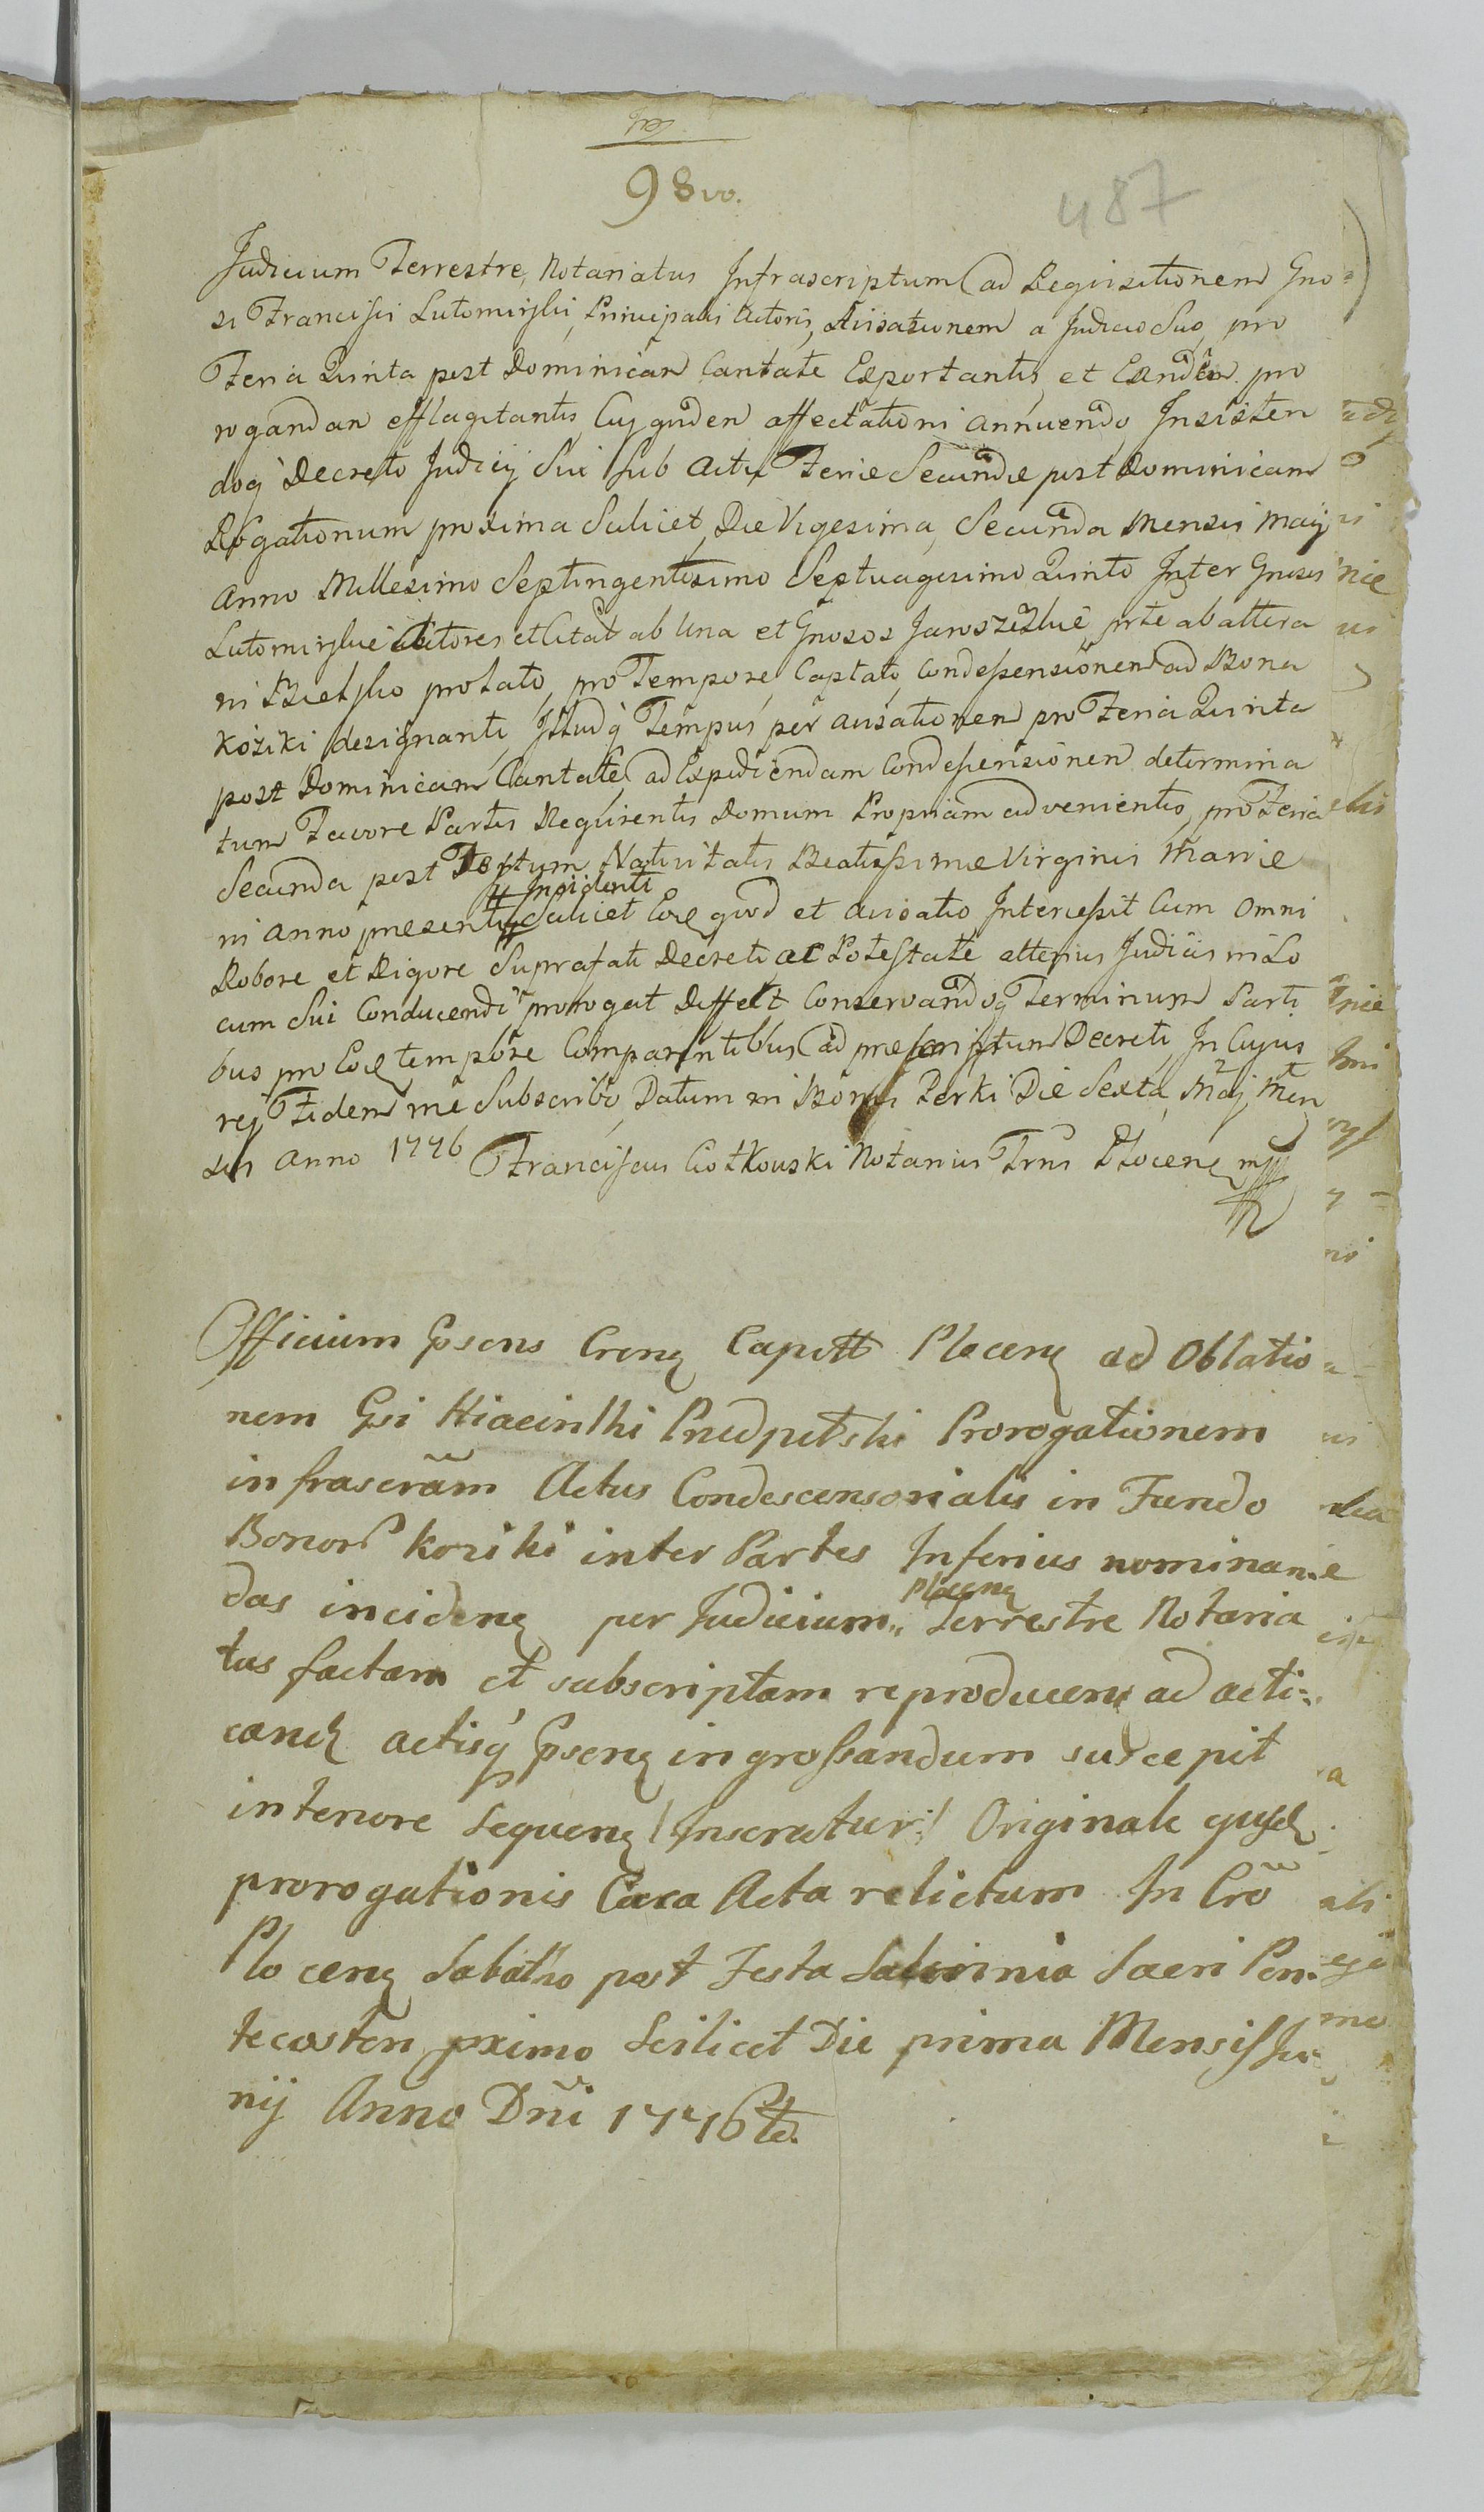 98vo.
487
Judicium Terrestre, Notariatus Infrascriptum ad Requisitionem Gno=
si Francisci Lutomirski, Principalis Actoris, Avisationem a Judicio Suo, pro
Feria Quinta post Dominicam Cantate Exportantis, et Eandem pro
rogandam efflagitantis, Cuj quidem affectationi annuendo, Insisten
doq Decreto Judicij Sui sub actu Feriæ Secundæ post Dominicam
Rogationum proxima Scilicet, Die Vigesima, Secunda Mensis Maij
Anno Millesimo Septingentesimo Septuagesimo Quinto Inter Gnosos
Lutomirskie Actores et Citat ab Una et Gnosos Jaroszewskie prte ab altera
in Bielsko prolato, pro Tempore, Captato, Condescensionem ad Bona
Koziki designanti, Istudq Tempus per avisationem pro Feria Quinta
post Dominicam Cantate, ad Expediendam Condescensionem determina
tum Favore Partis Requirentis Domum Propriam advenientis, pro Feria
Secunda post Festum Nativitatis Beatissimæ Virginis Mariæ
in anno præsenti Incidenti Scilicet Eoq quod et avisatio Intercessit Cum Omni
Robore et Rigore Suprafati Decreti, ac Potestate alterius Judicis in Lo
cum Sui Conducendi prorogat Differt Conservandoq Terminum Parti
bus pro Eoq tempore Comparentibus ad præscriptum Decreti, In Cujus
rej Fidem me Subscribo, Datum in Bonis Perki Die Sexta, Maj Men
sis Anno 1776 Franciscus Ciołkowski Notarius Trris Płocenę mpp
Officium Gpsens Crenę Capitt Plocenę ad Oblatio
nem Gsi Hiacinthi Przedpełski Prorogationem
infrascrãm Actus Condescensorialis in Fundo
Bonor Koziki inter Partes Inferius nominan
das incidenę per Judicium Plocenę Terrestre Notaria
tus factam et subscriptam reproducenę ad acti=
candę actisq Gpsenę ingrossandum suscepit
in tenore Sequenę /:Inseratur:/ Originale ejusdę
prorogationis Circa Acta relictum In Cro
Plocenę Sabatho post Festa Solennia Sacri Pen
tecosten pximo Scilicet Die prima Mensis Ju
nij Anno Dñi 1776to.